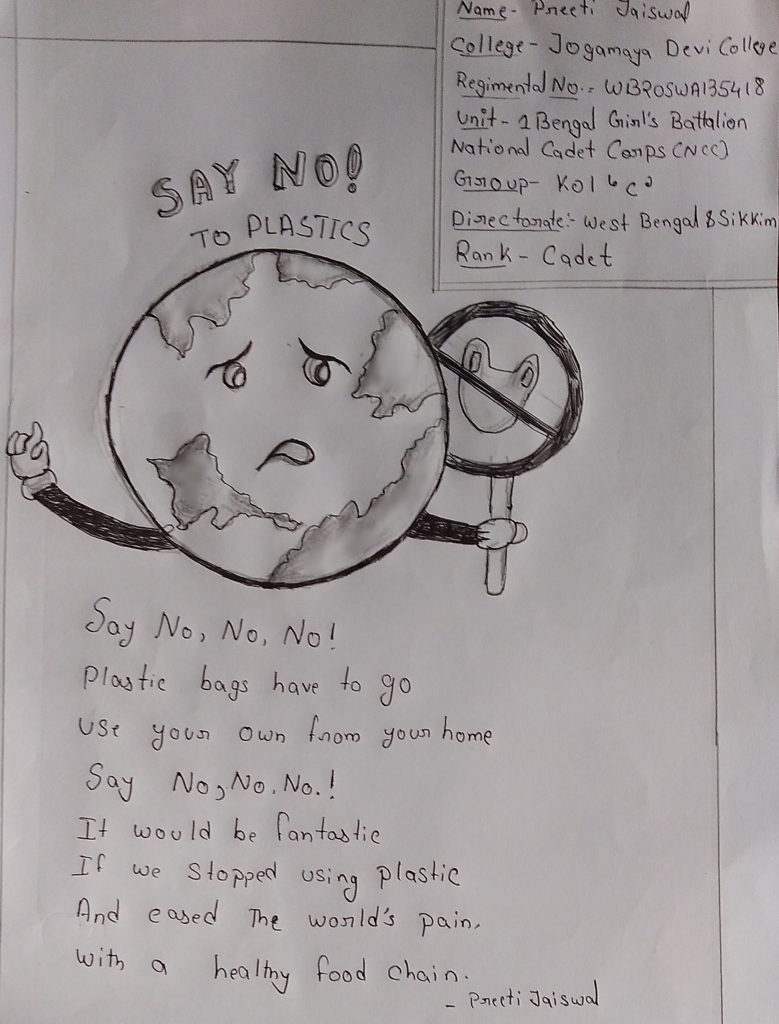 Name- Preeti Jaiswal
College- Jogamaya Devi College
Regimental No.- WB20SWA135418
Unit- 1 Bengal Girl's Battalion
National Cadet Corps (NCC)
Group- Kol 'C'
Directorate:- West Bengal & Sikkim
Rank- Cadet
SAY NO!
TO PLASTICS
Say No, No, No!
Plastic bags have to go
Use your own from your home
Say No, No. No.!
It would be fantastic
If we stopped using plastic
And eased The world's pain,
With a healthy food chain.
- Preeti Jaiswal